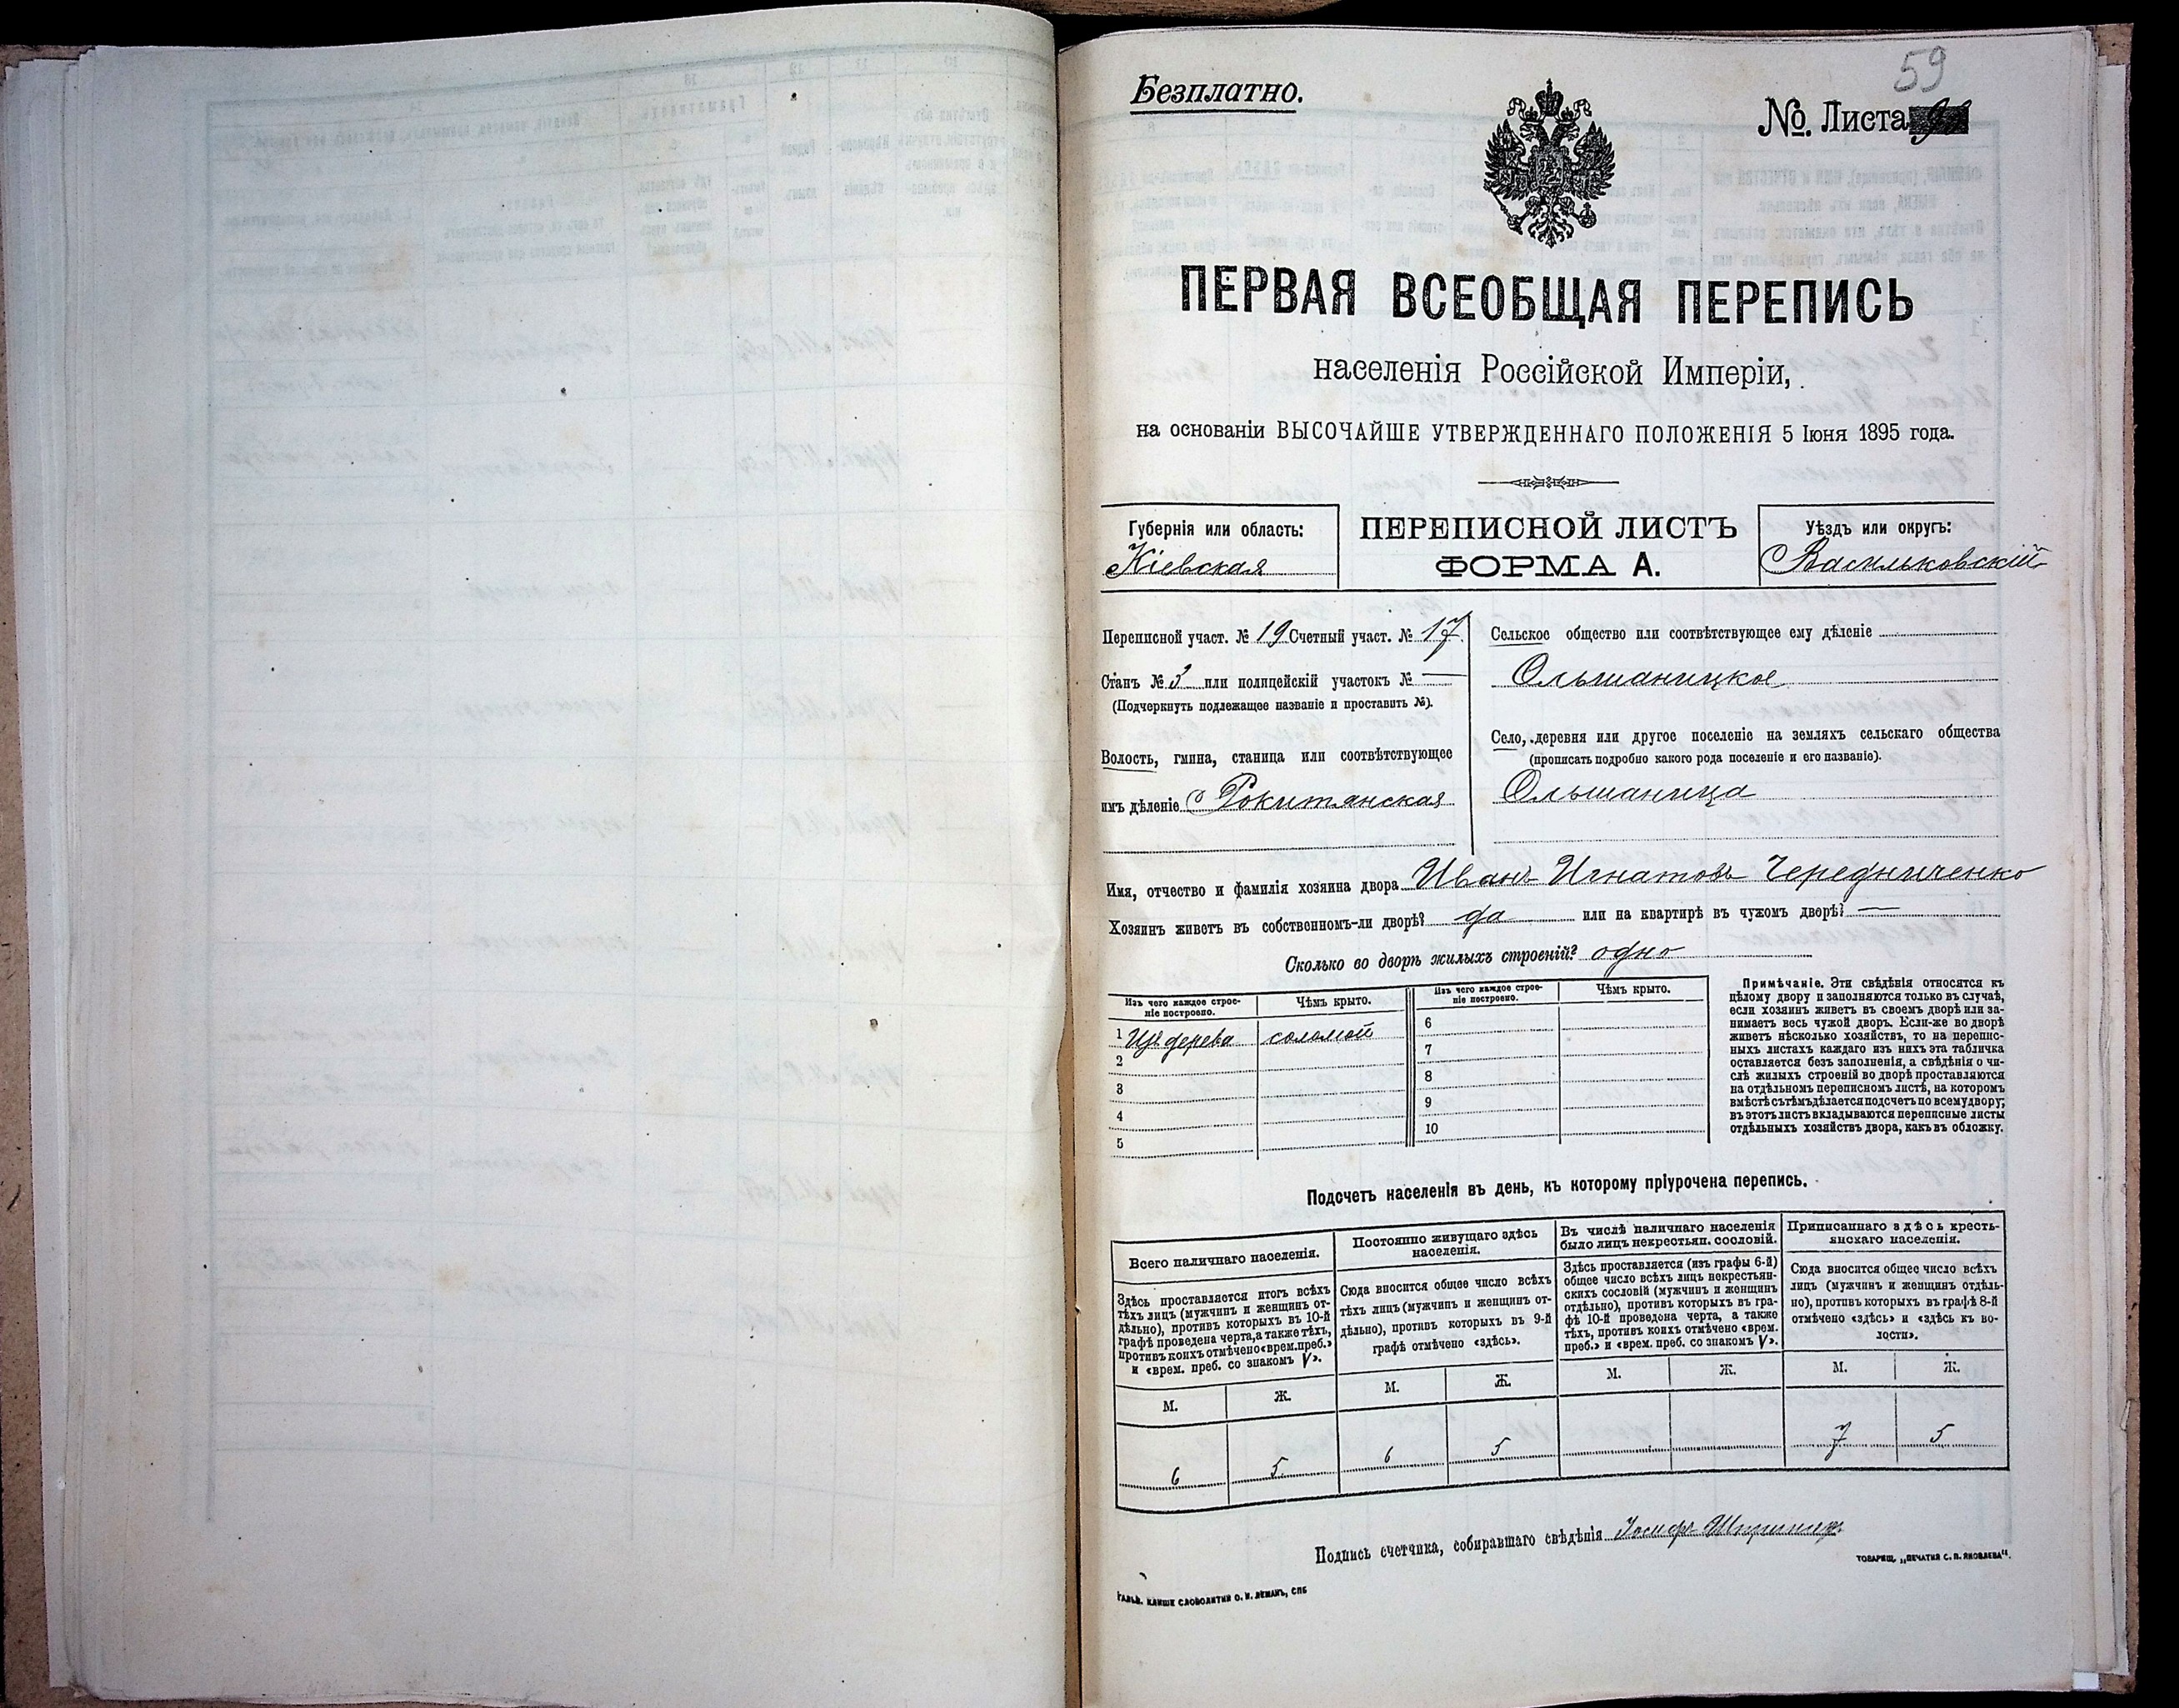 59
Безплатно.
№ Листа
ПЕРВАЯ ВСЕОБЩАЯ ПЕРЕПИСЬ
населенія Россійской Имперіи,
на основаніи ВЫСОЧАЙШЕ УТВЕРЖДЕННАГО ПОЛОЖЕНІЯ 5 Іюня 1895 года.
Губернія или область:
Кіевская
ПЕРЕПИСНОЙ ЛИСТЪ
ФОРМА А.
Уѣздъ или округъ:
Васильковскій
Переписной участ. № 19 Счетный участ. № 17
Станъ № 3 или полицейскій участокъ № —
(Подчеркнуть подлежащее названіе и проставить №).
Волость, гмина, станица или соотвѣтствующее
имъ дѣленіе Рокитянская
Сельское общество или соотвѣтствующее ему дѣленіе
Ольшаницкое
Село, деревня или другое поселеніе на земляхъ сельскаго общества
(прописать подробно какого рода поселеніе и его названіе).
Ольшаница
Имя, отчество и фамилія хозяина двора Иванъ Игнатовъ Чередниченко
Хозяинъ живетъ въ собственномъ-ли дворѣ? да или на квартирѣ въ чужомъ дворѣ? —
Сколько во дворѣ жилыхъ строеній? одно
Изъ чего каждое строе-
ніе построено.
Чѣмъ крыто.
Изъ чего каждое строе-
ніе построено.
Чѣмъ крыто.
1 Изъ дерева соломой 6
2 7
3 8
4 9
5 10
Примѣчаніе. Эти свѣдѣнія относятся къ
цѣлому двору и заполняются только въ случаѣ,
если хозяинъ живетъ въ своемъ дворѣ или за-
нимаетъ весь чужой дворъ. Если-же во дворѣ
живетъ нѣсколько хозяйствъ, то на перепис-
ныхъ листахъ каждаго изъ нихъ эта табличка
оставляется безъ заполненія, а свѣдѣнія о чи-
слѣ жилыхъ строеній во дворѣ проставляются
на отдѣльномъ переписномъ листѣ, на которомъ
вмѣстѣ съ тѣмъ дѣлается подсчетъ по всему двору;
въ этотъ листъ вкладываются переписные листы
отдѣльныхъ хозяйствъ двора, какъ въ обложку.
Подсчетъ населенія въ день, къ которому пріурочена перепись.
Всего наличнаго населенія.
Постоянно живущаго здѣсь
населенія.
Въ числѣ наличнаго населенія
было лицъ некрестьян. сословій.
Приписаннаго здѣсь кресть-
янскаго населенія.
Здѣсь проставляется итогъ всѣхъ
тѣхъ лицъ (мужчинъ и женщинъ от-
дѣльно), противъ которыхъ въ 10-й
графѣ проведена черта, а также тѣхъ,
противъ коихъ отмѣчено «врем. преб.»
и «врем. преб. со знакомъ V».
Сюда вносится общее число всѣхъ
тѣхъ лицъ (мужчинъ и женщинъ от-
дѣльно), противъ которыхъ въ 9-й
графѣ отмѣчено «здѣсь».
Здѣсь проставляется (изъ графы 6-й)
общее число всѣхъ лицъ некрестьян-
скихъ сословій (мужчинъ и женщинъ
отдѣльно), противъ которыхъ въ гра-
фѣ 10-й проведена черта, а также
тѣхъ, противъ коихъ отмѣчено «врем.
преб.» и «врем. преб. со знакомъ V».
Сюда вносится общее число всѣхъ
лицъ (мужчинъ и женщинъ отдѣль-
но), противъ которыхъ въ графѣ 8-й
отмѣчено «здѣсь» и «здѣсь къ во-
лости».
М. Ж. М. Ж. М. Ж. М. Ж.
6 5 6 5 7 5
Подпись счетчика, собиравшаго свѣдѣнія Іосифъ
ГАЛЬВ. КЛИШЕ СЛОВОЛИТНИ О. И. ЛЕМАНЪ, СПБ
ТОВАРИЩ. „ПЕЧАТНЯ С. П. ЯКОВЛЕВА".